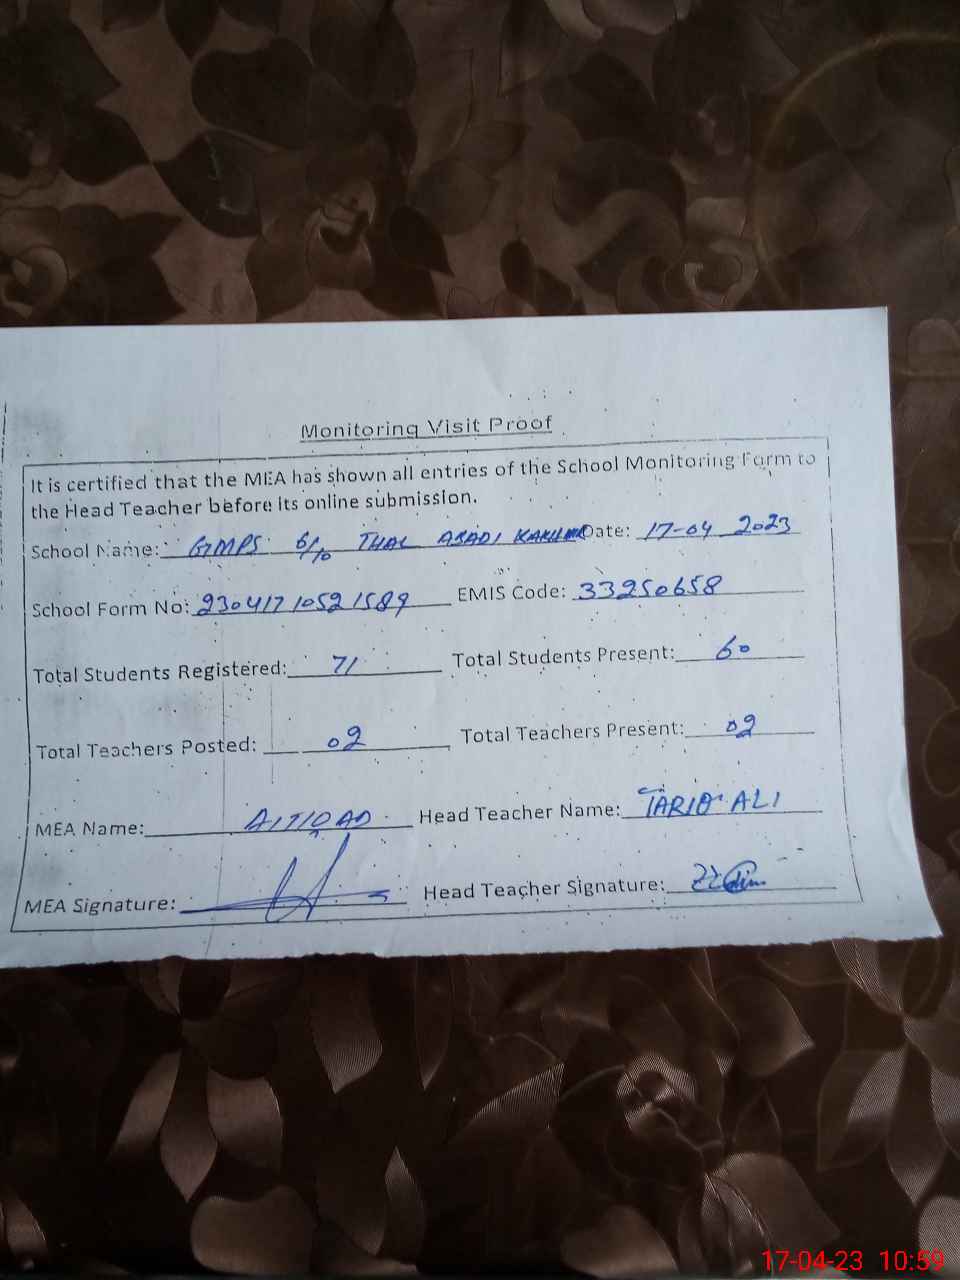 Monitoring Visit Proof
It is certified that the MEA has shown all entries of the School Monitoring Form to
the Head Teacher before its online submission.
School Name: GMPS 6/10 THAL ABADI Date: 17-04 2023
School Form No: 2304171052 1589 EMIS Code: 33250658
Total Students Registered: 71 Total Students Present: 60
Total Teachers Posted: 02 Total Teachers Present: 02
MEA Name: Head Teacher Name: TARIQ ALI
MEA Signature: Head Teacher Signature:
17-04-23 10:59